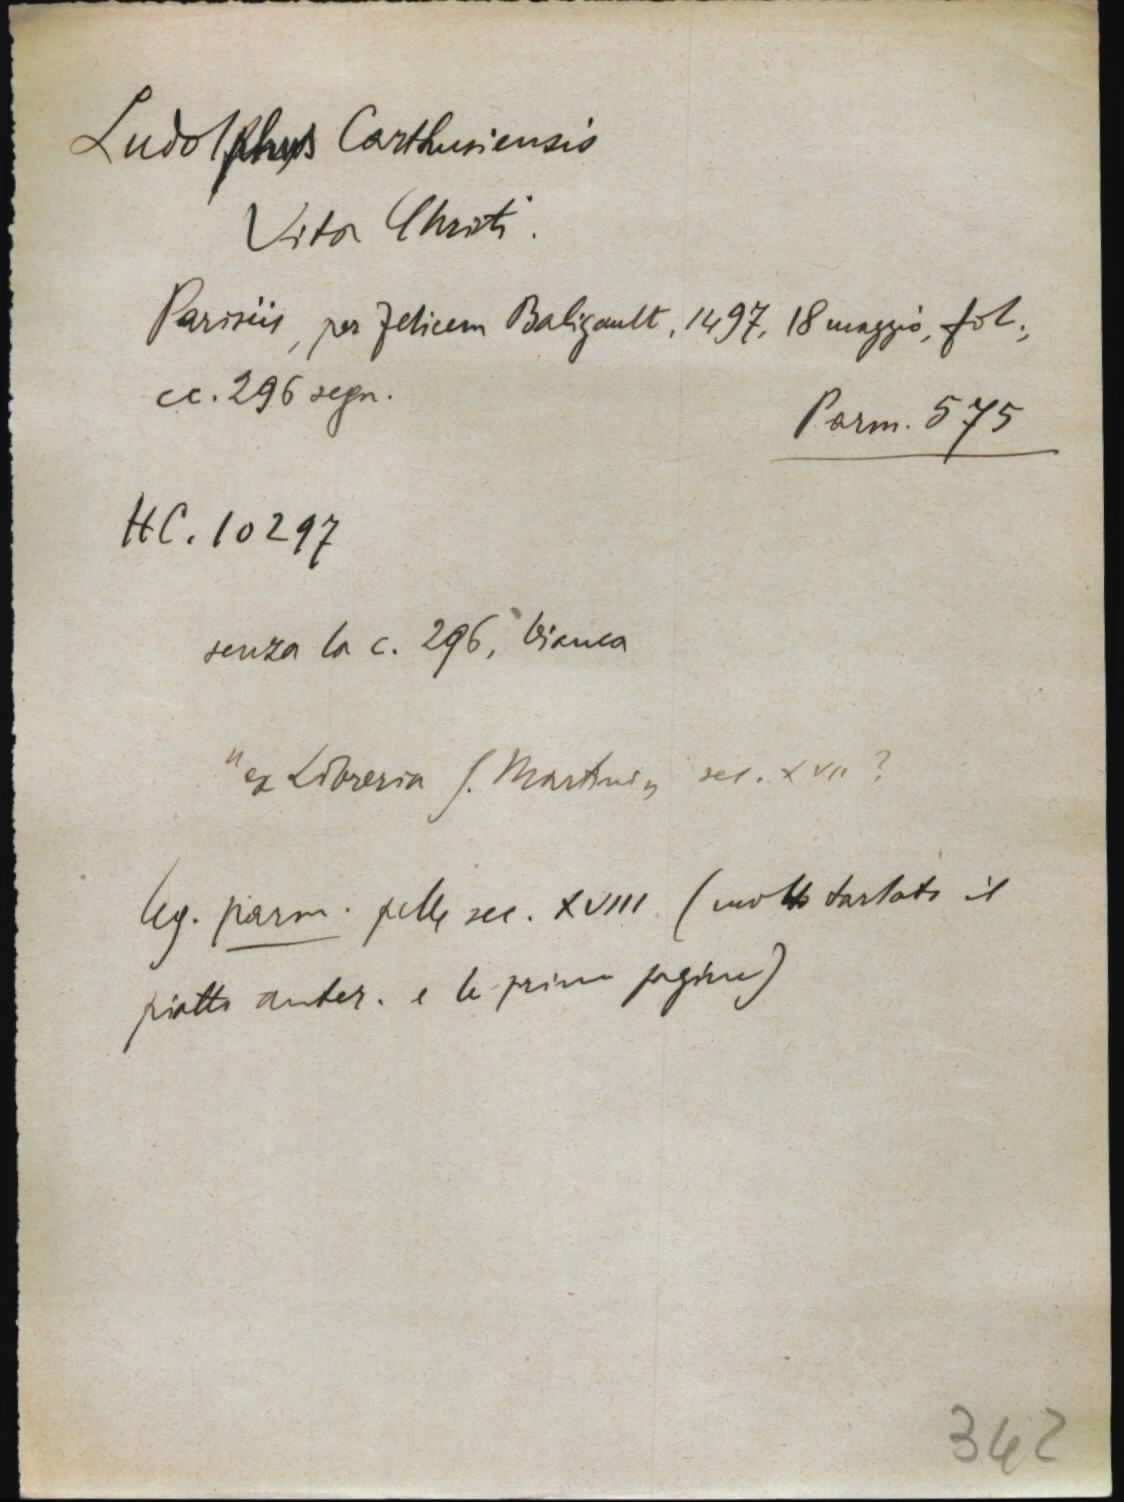 Ludolphus Carthusiensis
Vita Christi.
Parisiis, per Felicem Baligault, 1497, 18 maggio, fol.,
cc. 296 segn.
Parm. 575
HC. 10297
senza la c. 296, bianca
"ex Libreria S. Martini" sec. XVII?
leg. parm. pelle sec. XVIII (molto tarlato il
piatto anter. e le prime pagine)
342